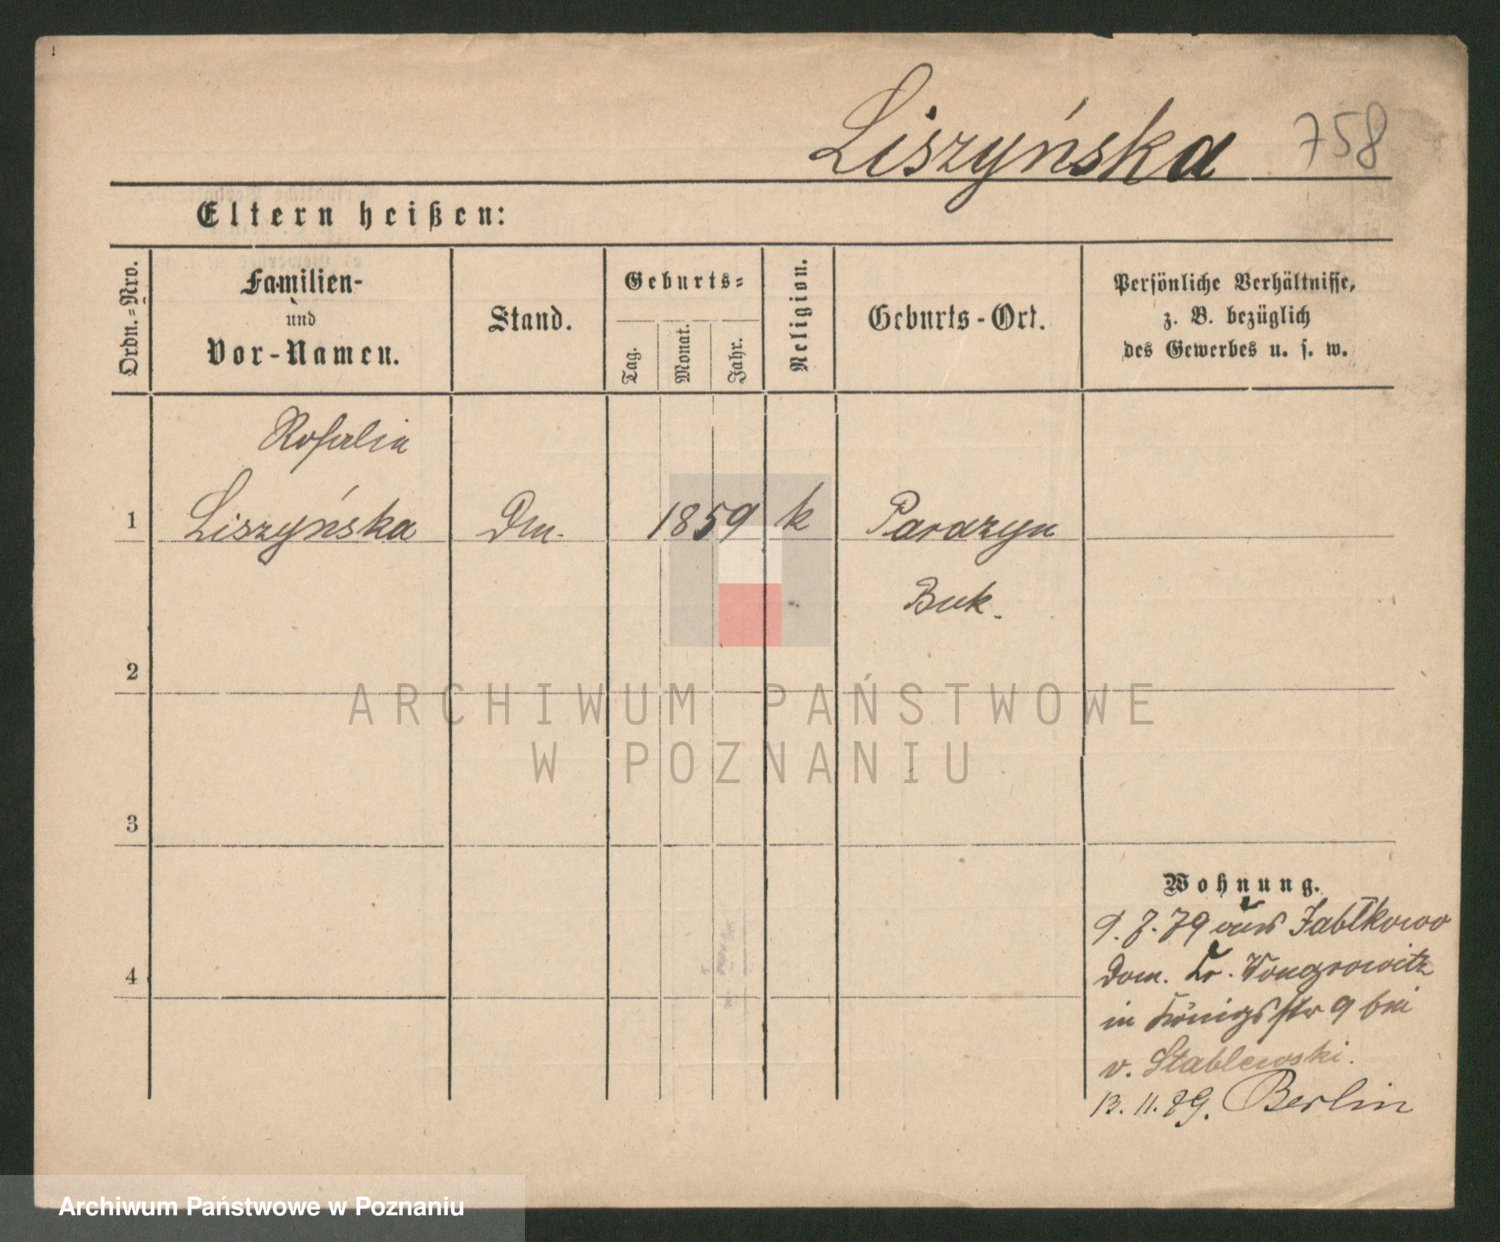 Liszyńska 758
Eltern heißen:
Ordn.-Nro.
Familien-
und
Vor-Namen.
Stand.
Geburts-
Tag.
Monat.
Jahr.
Religion.
Geburts-Ort.
Persönliche Verhältnisse,
z. B. bezüglich
des Gewerbes u. s. w.
Rosalia
1 Liszyńska Dm. 1859 k Parazyn
Buk.
2
3
4
Wohnung.
9. 7. 79 aus Jabłkowo
Dom. Kr. Wongrowitz
in Königsstr 9 bei
v. Stablewski.
13. 11. 79. Berlin
ARCHIWUM PAŃSTWOWE
W POZNANIU
Archiwum Państwowe w Poznaniu